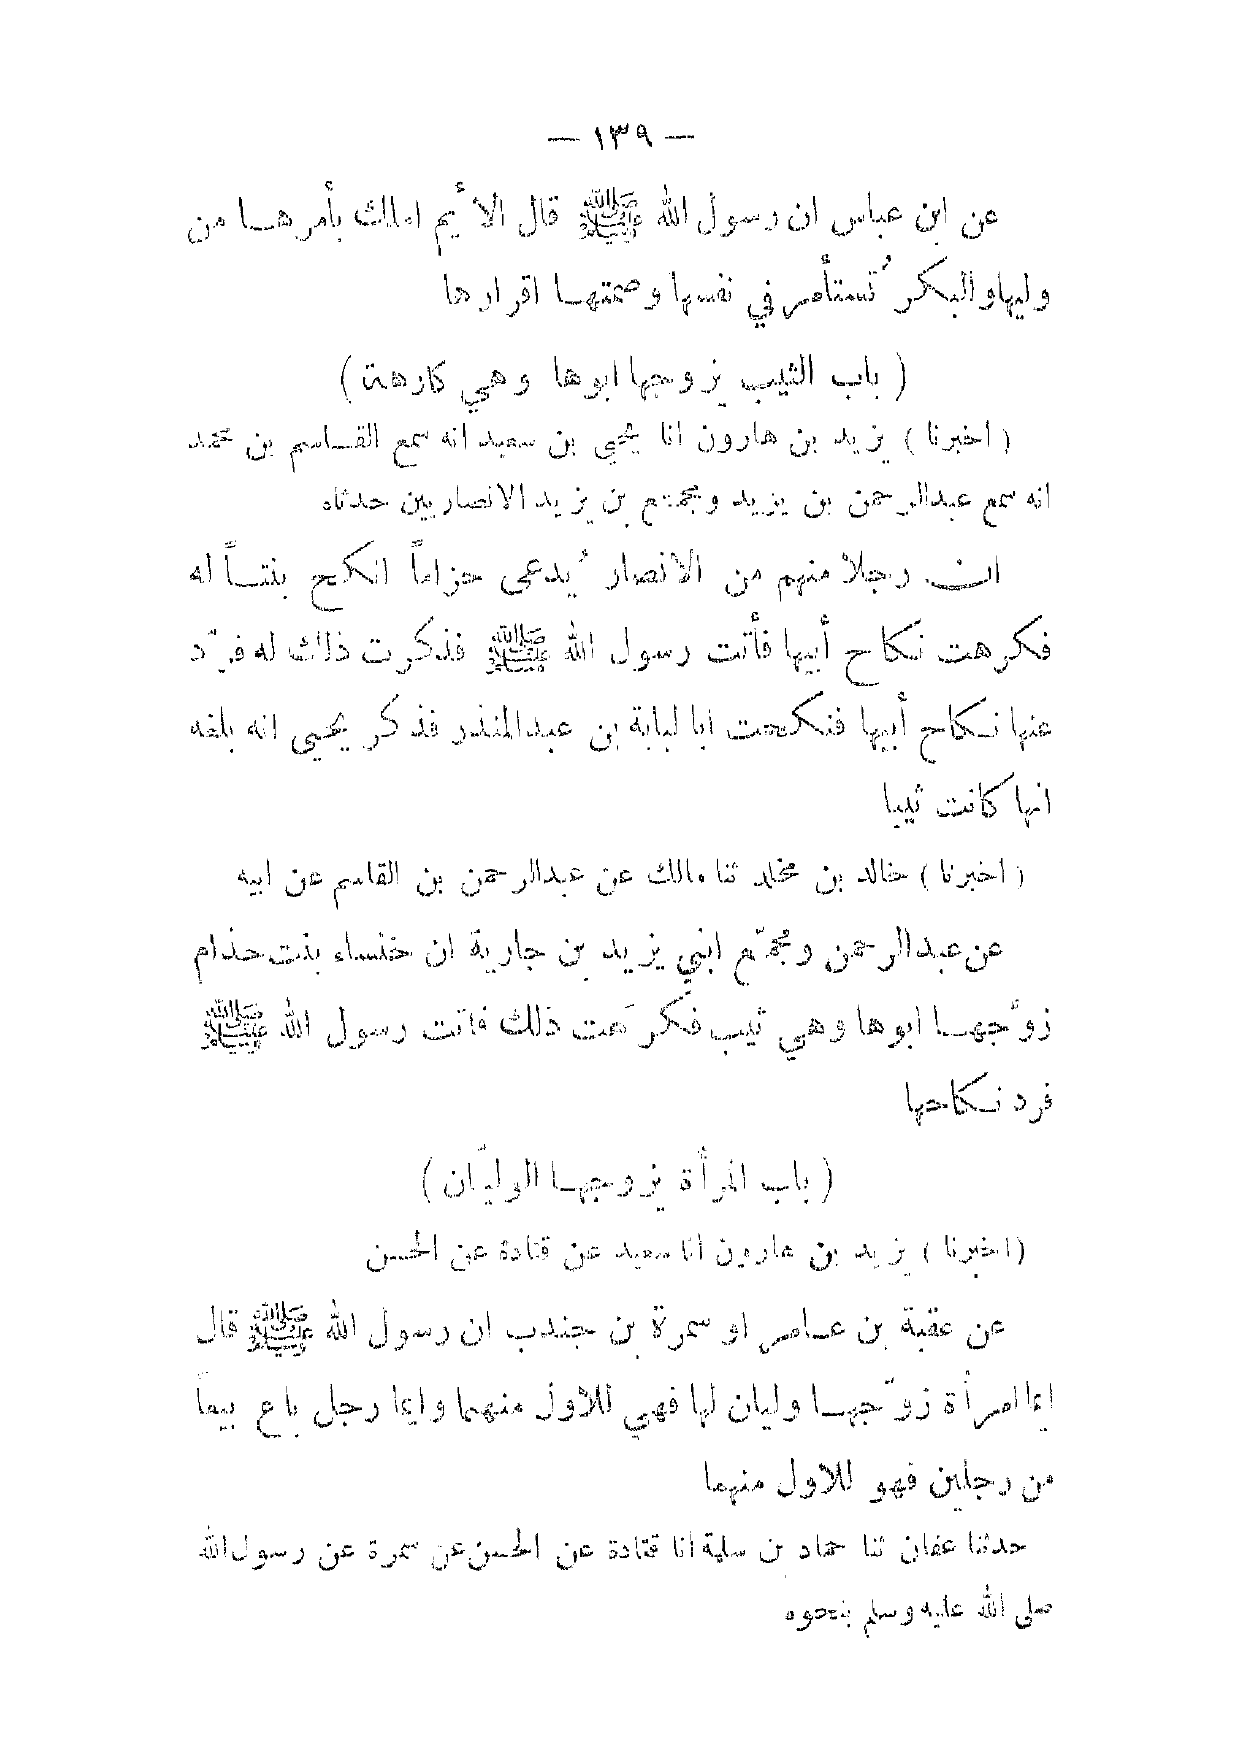 — ١٣٩ —
عن ابن عباس ان رسول الله ﷺ قال الأيم املك بأمرهـا من
وليها والبكر تُستأمر في نفسها وصمتهـا اقرارها
( باب الثيب يزوجها ابوها وهي كارهة )
( اخبرنا ) يزيد بن هارون انا يحيى بن سعيد انه سمع القـاسم بن محمد
انه سمع عبدالرحمن بن يزيد ومجمع بن يزيد الانصاريين حدثاه
ان رجلا منهم من الانصار يُدعى حزاماً انكح بنتـاً له
فكرهت نكاح أبيها فأتت رسول الله ﷺ فذكرت ذلك له فرّد
عنها نكاح أبيها فنكحت ابا لبابة بن عبدالمنذر فذكر يحيى انه بلغه
انها كانت ثيبا
( اخبرنا ) خالد بن مخلد ثنا مالك عن عبدالرحمن بن القاسم عن ابيه
عن عبدالرحمن ومجمّع ابني يزيد بن جارية ان خنساء بنت حذام
زوّجهـا ابوها وهي ثيب فكرَهت ذلك فاتت رسول الله ﷺ
فرد نكاحها
( باب المرأة يزوجهـا الوليّان )
( اخبرنا ) يزيد بن هارون انا سعيد عن قتادة عن الحسن
عن عقبة بن عـامر او سمرة بن جندب ان رسول الله ﷺ قال
ايما امرأة زوّجهـا وليان لها فهي للاول منهما وايما رجل باع بيعاً
من رجلين فهو للاول منهما
حدثنا عفان ثنا حماد بن سلمة انا قتادة عن الحسن عن سمرة عن رسول الله
صلى الله عليه وسلم بنحوه